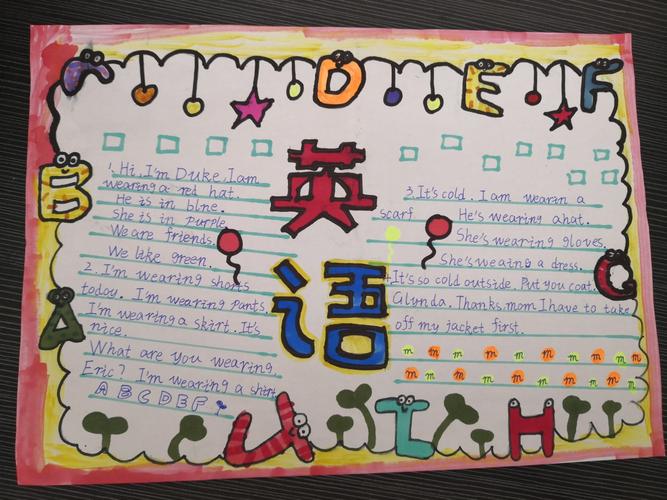 D E F
B
A
G
J I H
英
语
1. Hi, I'm Duke. I am
wearing a red hat.
He is in blne.
She is in purple
We are friends.
We like green.
2. I'm wearing shorts
today. I'm wearing pants,
I'm wearing a skirt. It's
nice.
What are you wearing
Eric? I'm wearing a shirt
A B C D E F
3. It's cold. I am wearin a
scarf
He's wearing a hat.
She's wearing gloves.
She's weaing a dress.
It's so cold outside. Put you coat.
Glynda. Thanks, mom I have to take
off my jacket first.
m m m m m m m m m m
m m m m m m m m m m